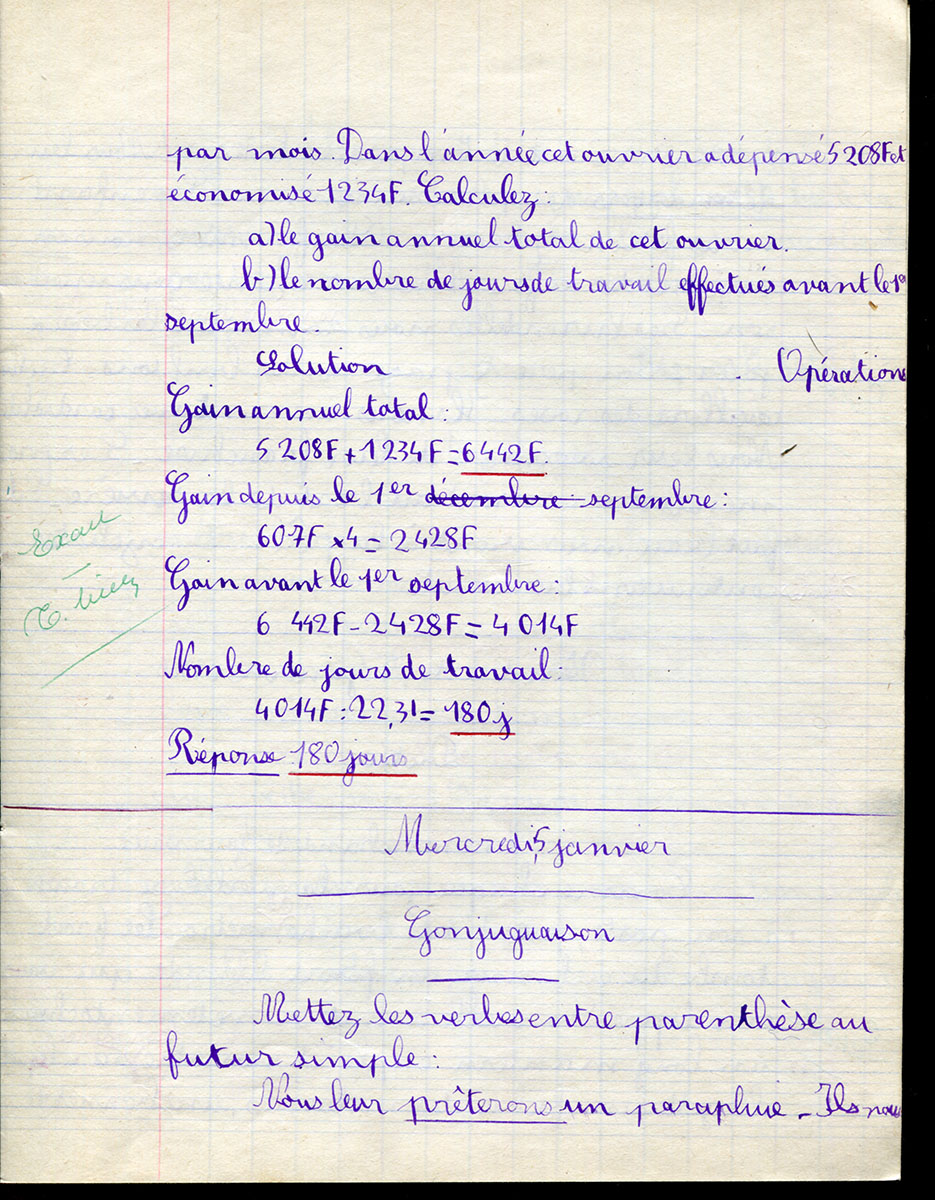 par mois. Dans l'année cet ouvrier a dépensé 5 208F et
économisé 1 234F. Calculez :
a) le gain annuel total de cet ouvrier.
b) le nombre de jours de travail effectués avant le 1er
septembre.
Solution Opérations
Gain annuel total :
5 208F + 1 234F = 6 442F.
Gain depuis le 1er décembre septembre :
607F x 4 = 2 428F
Gain avant le 1er septembre :
6 442F - 2 428F = 4 014F
Exact
T. bien
Nombre de jours de travail :
4 014F : 22,31 = 180 j
Réponse 180 jours
Mercredi 5 janvier
Conjuguaison
Mettez les verbes entre parenthèse au
futur simple :
Nous leur prêterons un parapluie - Ils